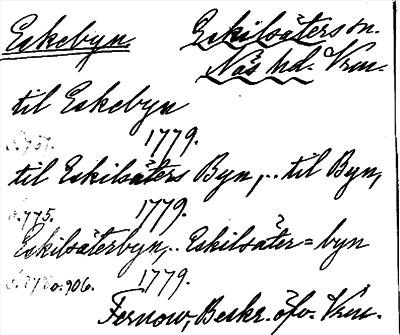 Eskebyn Eskilsäters sn.
Näs hd. Vrm.
til Eskebyn
1779.
til Eskilsäters Byn,.. til Byn,
s. 775. 1779.
Eskilsäterbyn,.. Eskilsäter=byn
o. 906. 1779.
Fernow, Beskr. öfv. Vrm.